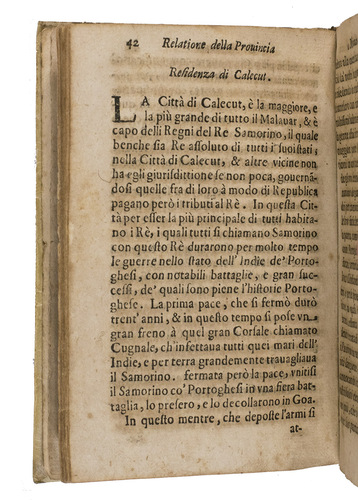 42 Relatione della Prouincia
Residenza di Calecut.
LA Città di Calecut, è la maggiore, e
la più grande di tutto il Malauar, & è
capo delli Regni del Re Samorino, il quale
benche sia Re assoluto di tutti i suoi stati;
nella Città di Calecut, & altre vicine non
ha egli giurisdittione se non poca, gouernã-
dosi quelle fra di loro à modo di Republica
pagano però i tributi al Rè. In questa Cit-
tà per esser la più principale di tutti habita-
no i Rè, i quali tutti si chiamano Samorino
con questo Rè durarono per molto tempo
le guerre nello stato dell' Indie de' Porto-
ghesi, con notabili battaglie, e gran suc-
cessi, de' quali sono piene l'historie Porto-
ghese. La prima pace, che si fermò durò
trent' anni, & in questo tempo si pose vn
gran freno à quel gran Corsale chiamato
Cugnale, ch'infettaua tutti quei mari dell'
Indie, e per terra grandemente trauagliaua
il Samorino. fermata però la pace, vnitisi
il Samorino co' Portoghesi in vna fiera bat-
taglia, lo presero, e lo decollarono in Goa.
In questo mentre, che deposte l'armi si
at-